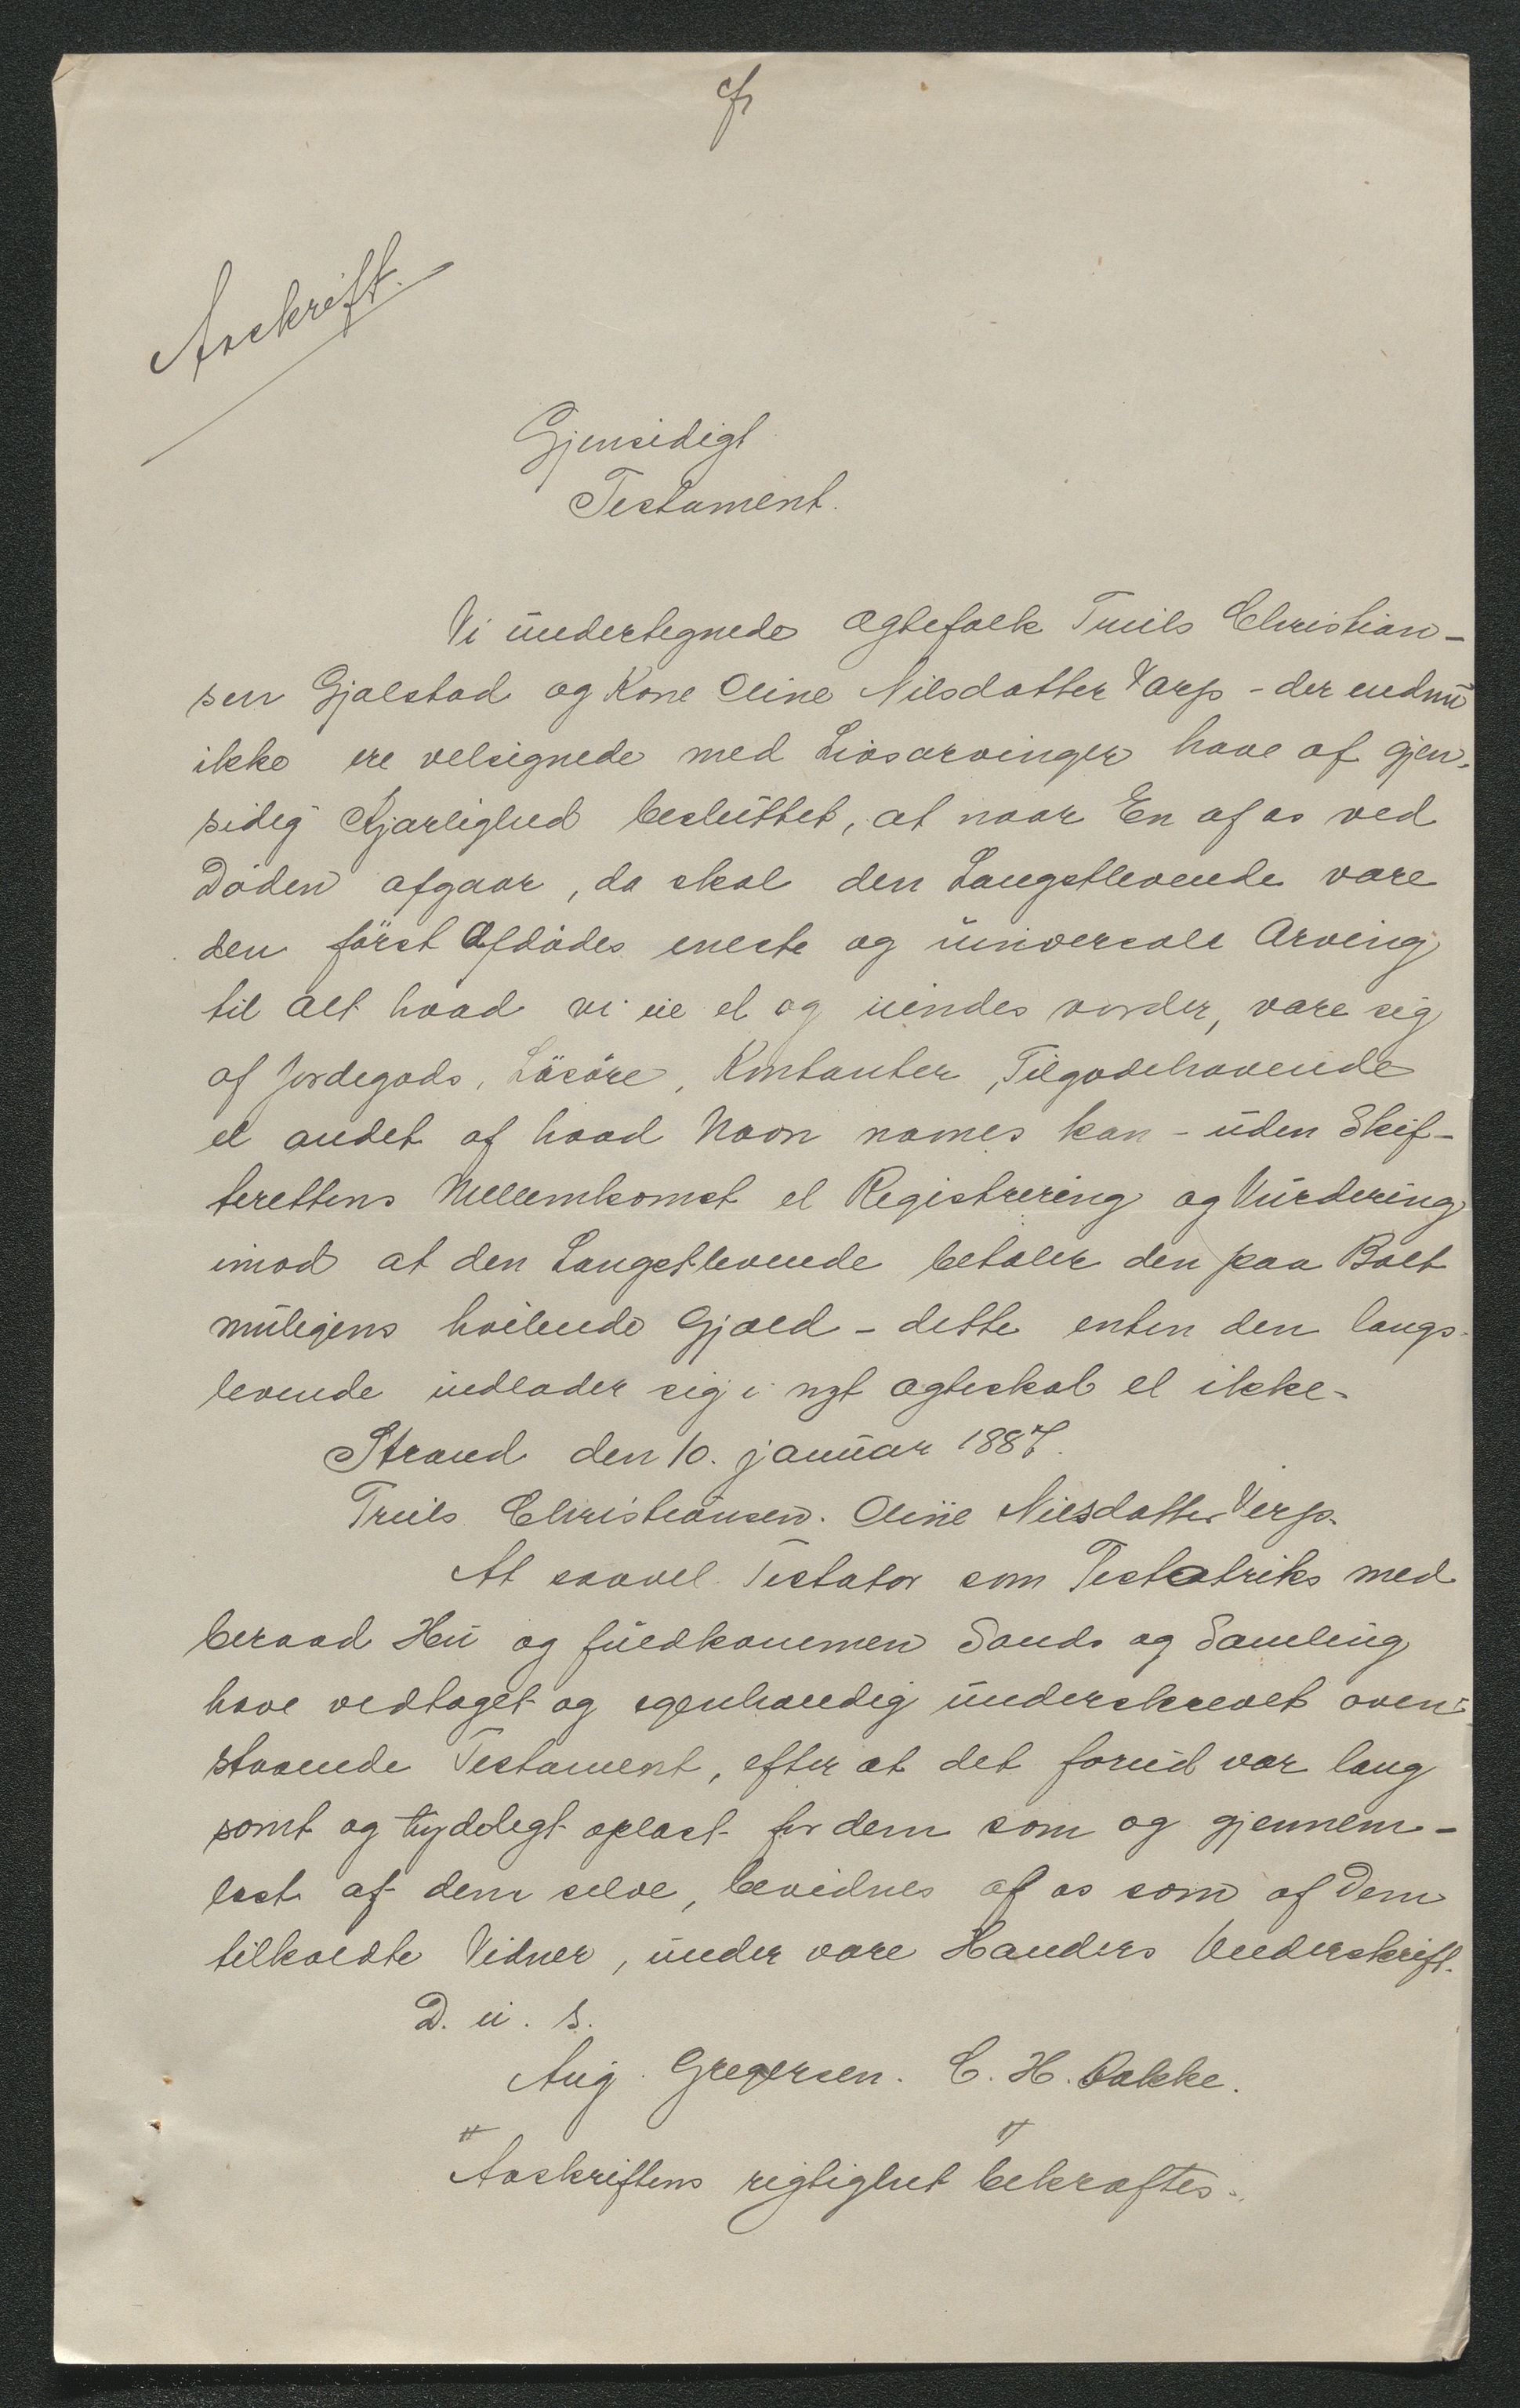 Avskrift.
Gjensidigt
Testament.
Vi undertegnede Ægtefolk Truils Christian-
sen Gjølstad og Kone Oline Nilsdatter Varp - der endnu
ikke ere velsignede med Livsarvinger have af gjen-
sidig Kjærlighed besluttet, at naar En af os ved
Döden afgaar, da skal den Længstlevende være
den först Afdödes eneste og universale Arving
til alt hvad vi eie el og eiendes vorder, være sig
af Jordegods, Lösöre, Kontanter, Tilgodehavende
el andet af hvad Navn nævnes kan - uden Skif-
terettens Mellemkomst el Registrering og Vurdering
imod at den Længstlevende betaler den paa Boet
muligens hvilende Gjæld - dette enten den længs-
levende indlader sig i nyt Ægteskab el ikke -
Strand den 10. januar 1887.
Truils Christiansen. Oline Nilsdatter Verp.
At saavel Testator som Testatriks med
beraad Hu og fuldkommen Sands og Samling
have vedtaget og egenhændig underskrevet oven-
staaende Testament, efter at det forud var lang
somt og tydeligt oplæst for dem som og gjennem-
læst af dem selve, bevidnes af os som af Dem
tilkaldte Vidner, under vore Hænders Underskrift.
D. u. s.
Aug. Gregersen. C. H. Bakke.
Avskriftens rigtighet bekræftes.